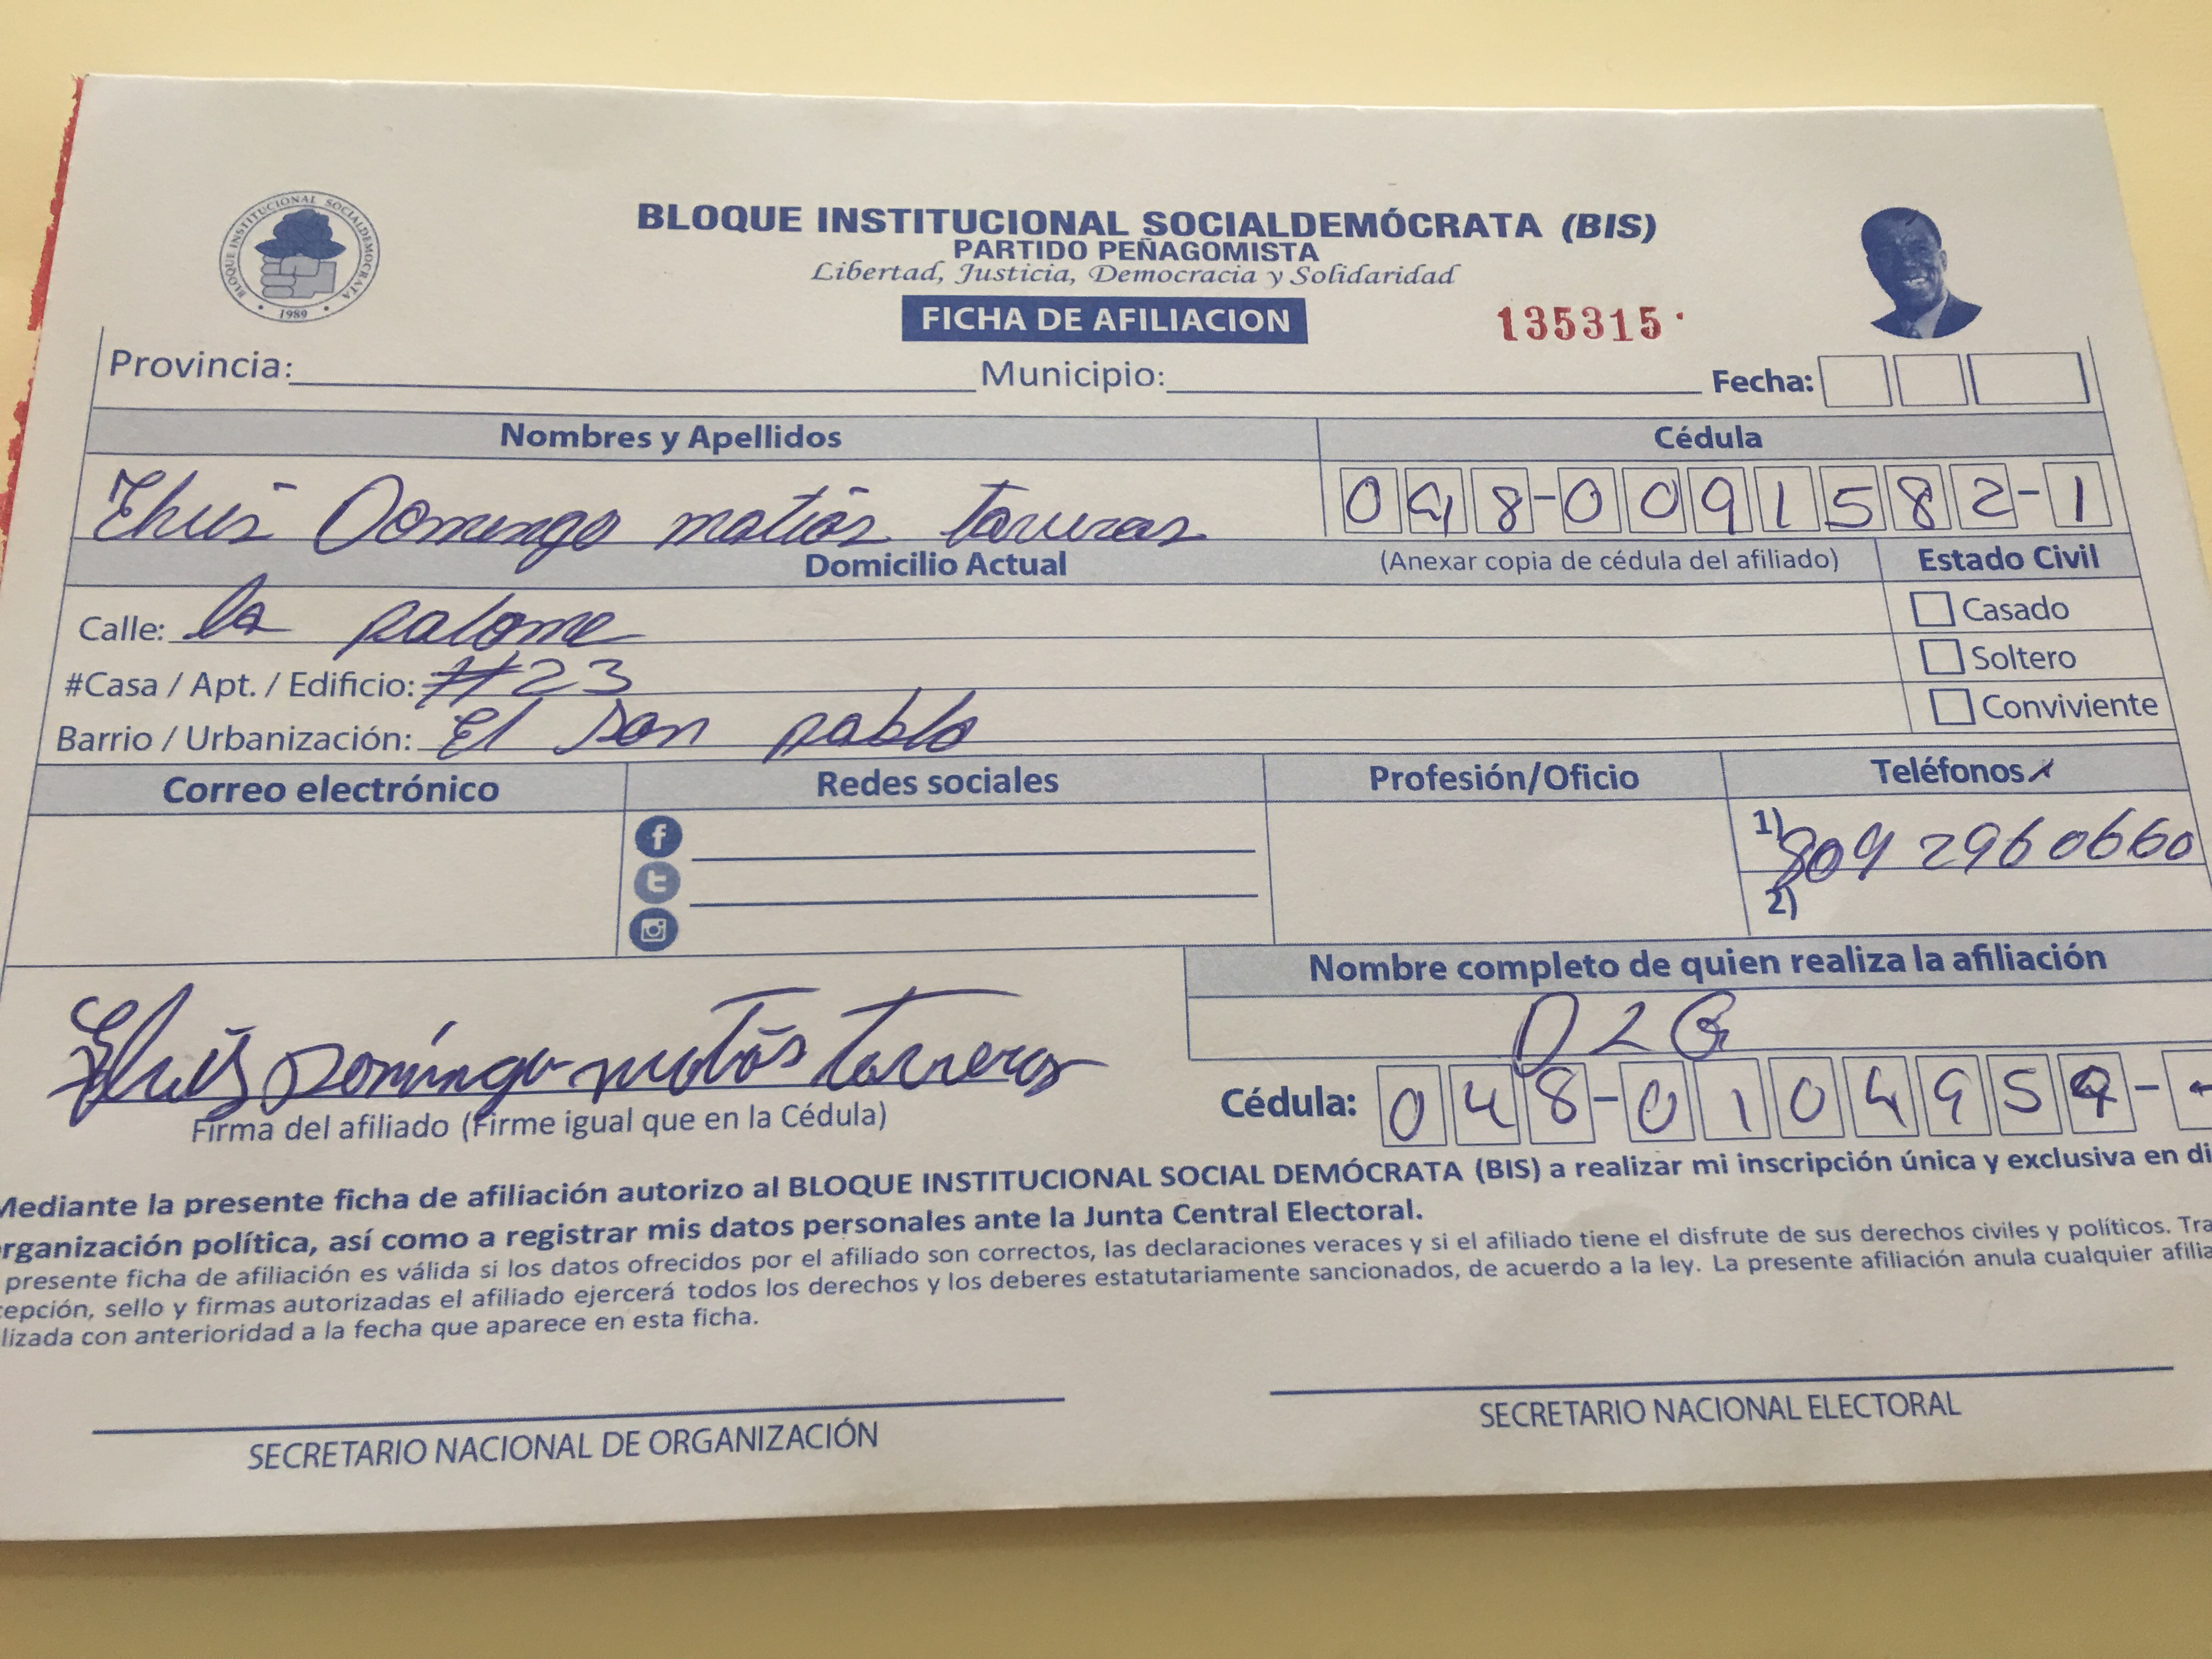 BLOQUE INSTITUCIONAL SOCIALDEMÓCRATA
1989
BLOQUE INSTITUCIONAL SOCIALDEMÓCRATA (BIS)
PARTIDO PEÑAGOMISTA
Libertad, Justicia, Democracia y Solidaridad
FICHA DE AFILIACION 135315
Provincia: Municipio: Fecha:
Nombres y Apellidos Cédula
Domingo matías 048-0091582-1
Domicilio Actual (Anexar copia de cédula del afiliado) Estado Civil
Calle: la paloma Casado
#Casa / Apt. / Edificio: #23 Soltero
Barrio / Urbanización: El san pablo Conviviente
Correo electrónico Redes sociales Profesión/Oficio Teléfonos
1) 809 2960660
2)
Nombre completo de quien realiza la afiliación
Domíngo matías
Firma del afiliado (Firme igual que en la Cédula) Cédula: 048-01049
Mediante la presente ficha de afiliación autorizo al BLOQUE INSTITUCIONAL SOCIAL DEMÓCRATA (BIS) a realizar mi inscripción única y exclusiva en di
rganización política, así como a registrar mis datos personales ante la Junta Central Electoral.
presente ficha de afiliación es válida si los datos ofrecidos por el afiliado son correctos, las declaraciones veraces y si el afiliado tiene el disfrute de sus derechos civiles y políticos. Tra
cepción, sello y firmas autorizadas el afiliado ejercerá todos los derechos y los deberes estatutariamente sancionados, de acuerdo a la ley. La presente afiliación anula cualquier afilia
lizada con anterioridad a la fecha que aparece en esta ficha.
SECRETARIO NACIONAL DE ORGANIZACIÓN SECRETARIO NACIONAL ELECTORAL